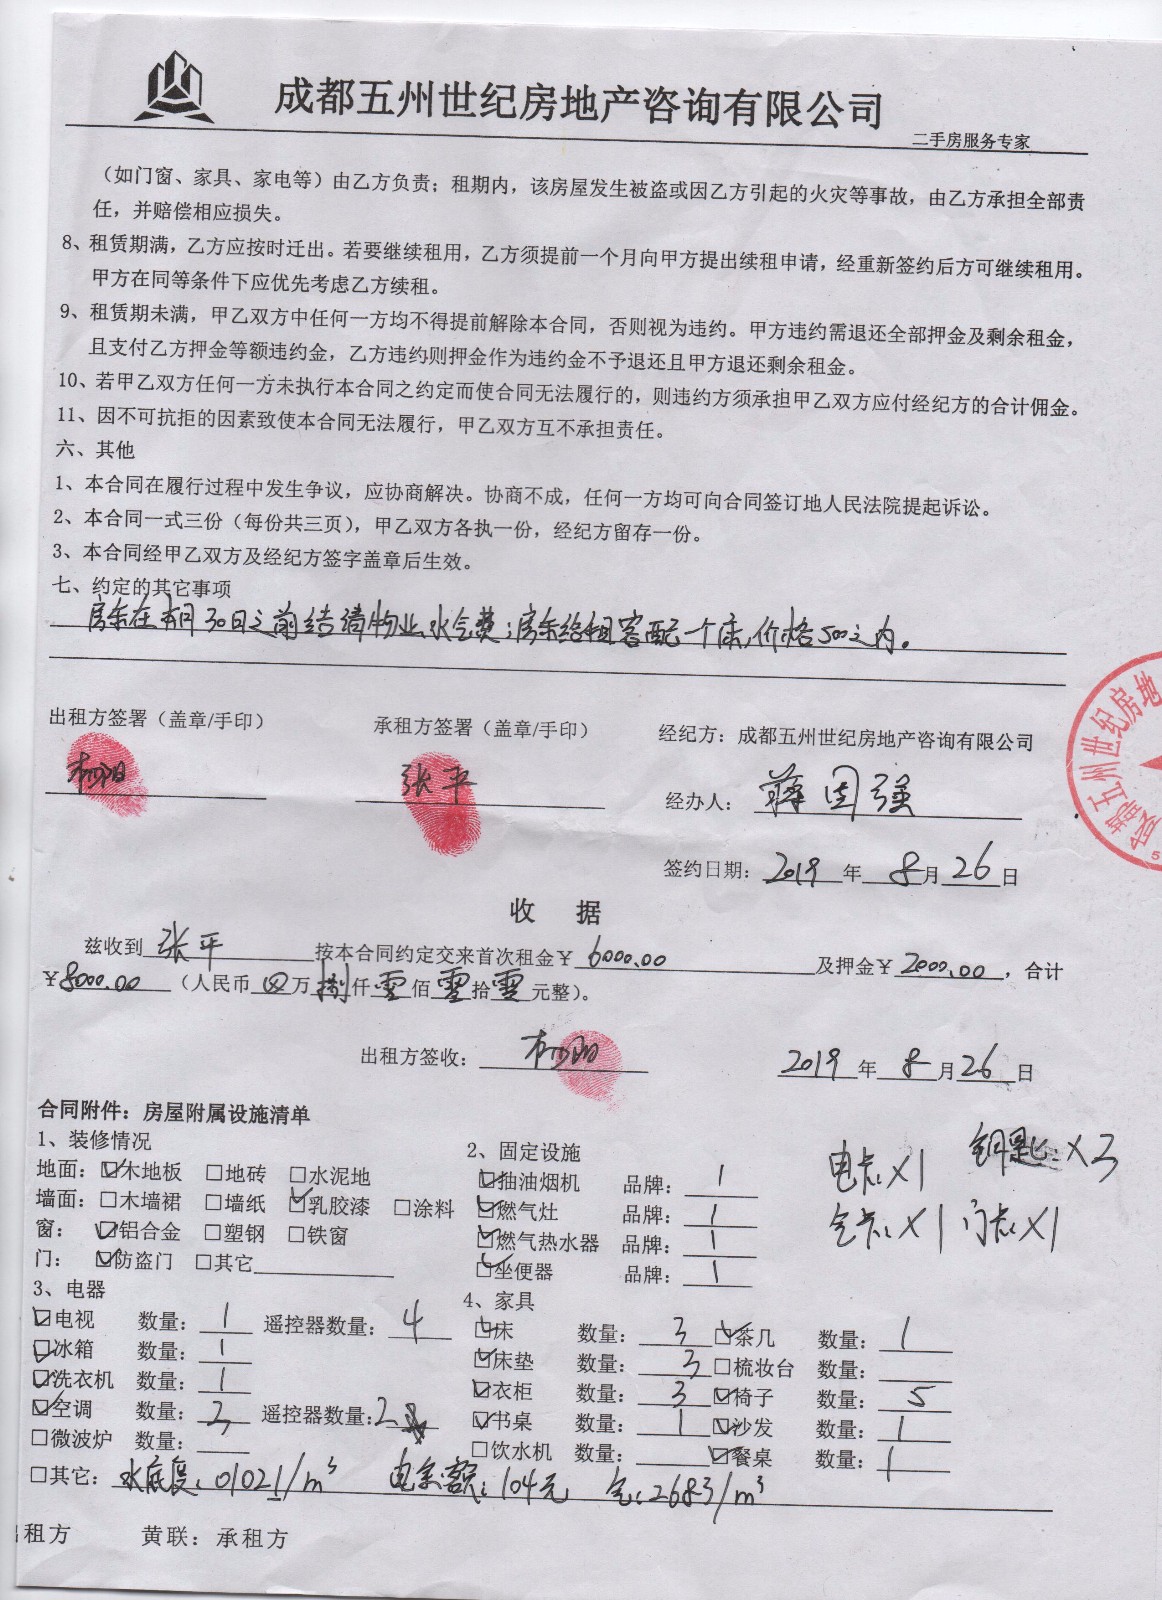 成都五州世纪房地产咨询有限公司
二手房服务专家
（如门窗、家具、家电等）由乙方负责；租期内，该房屋发生被盗或因乙方引起的火灾等事故，由乙方承担全部责
任，并赔偿相应损失。
8、租赁期满，乙方应按时迁出。若要继续租用，乙方须提前一个月向甲方提出续租申请，经重新签约后方可继续租用。
甲方在同等条件下应优先考虑乙方续租。
9、租赁期未满，甲乙双方中任何一方均不得提前解除本合同，否则视为违约。甲方违约需退还全部押金及剩余租金，
且支付乙方押金等额违约金，乙方违约则押金作为违约金不予退还且甲方退还剩余租金。
10、若甲乙双方任何一方未执行本合同之约定而使合同无法履行的，则违约方须承担甲乙双方应付经纪方的合计佣金。
11、因不可抗拒的因素致使本合同无法履行，甲乙双方互不承担责任。
六、其他
1、本合同在履行过程中发生争议，应协商解决。协商不成，任何一方均可向合同签订地人民法院提起诉讼。
2、本合同一式三份（每份共三页），甲乙双方各执一份，经纪方留存一份。
3、本合同经甲乙双方及经纪方签字盖章后生效。
七、约定的其它事项
房东在本月30日之前结清物业水气费；房东给租客配一个床，价格500之内。
出租方签署（盖章/手印） 承租方签署（盖章/手印） 经纪方：成都五州世纪房地产咨询有限公司
张平 经办人：蒋国强
成都五州世纪房地
签约日期：2019年8月26日
收 据
兹收到张平按本合同约定交来首次租金￥6000.00及押金￥2000.00，合计
￥8000.00（人民币⊗万捌仟零佰零拾零元整）。
出租方签收： 2019年8月26日
合同附件：房屋附属设施清单
1、装修情况 2、固定设施
地面：☑木地板 □地砖 □水泥地 ☑抽油烟机 品牌：1 电卡：X1 钥匙：X3
墙面：□木墙裙 □墙纸 ☑乳胶漆 □涂料 ☑燃气灶 品牌：1 气卡：X1 门卡：X1
窗：☑铝合金 □塑钢 □铁窗 ☑燃气热水器 品牌：1
门：☑防盗门 □其它 ☑坐便器 品牌：1
3、电器 4、家具
☑电视 数量：1 遥控器数量：4 ☑床 数量：3 ☑茶几 数量：1
☑冰箱 数量：1 ☑床垫 数量：3 □梳妆台 数量：
☑洗衣机 数量：1 ☑衣柜 数量：3 ☑椅子 数量：5
☑空调 数量：2 遥控器数量：2 ☑书桌 数量：1 ☑沙发 数量：1
□微波炉 数量： □饮水机 数量： ☑餐桌 数量：1
□其它：水底度：01021/m³ 电余额：104元 气：2683/m³
租方 黄联：承租方